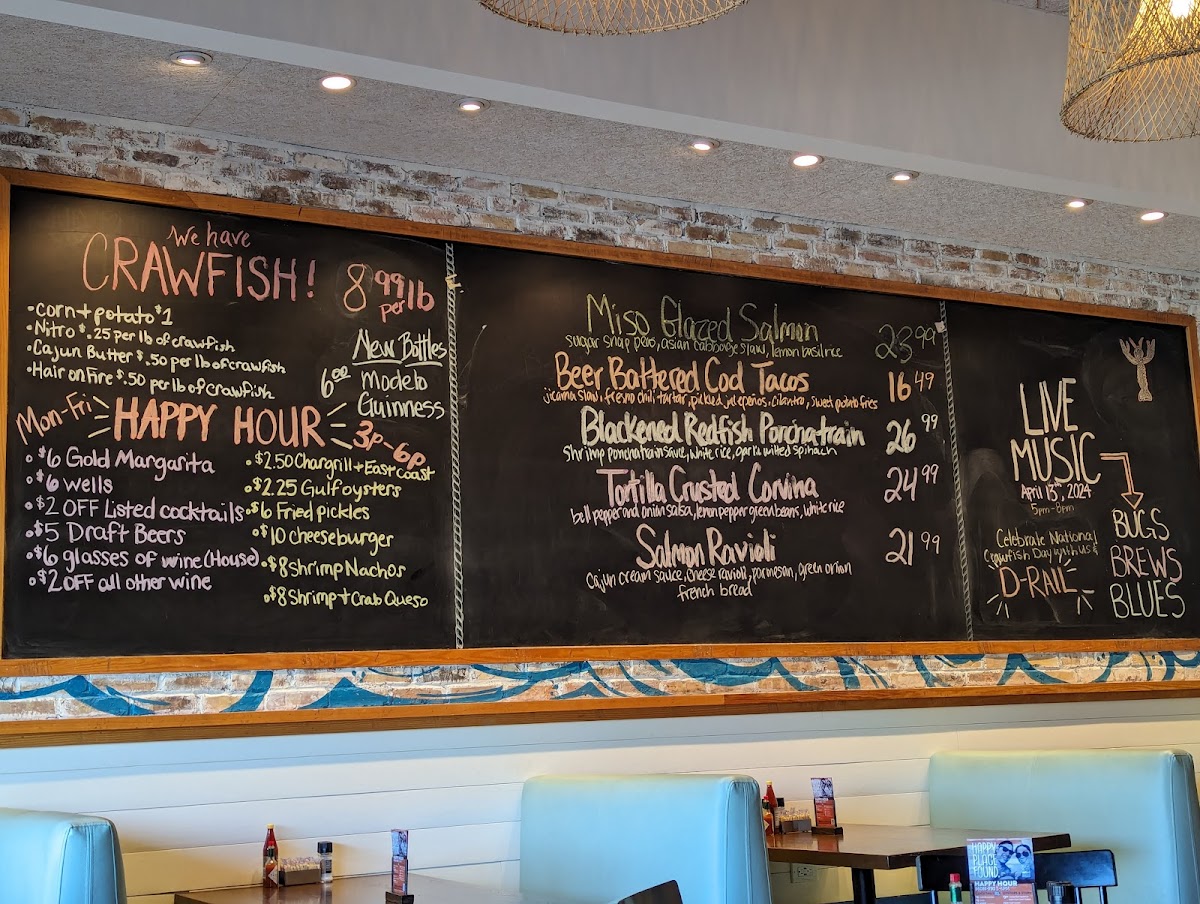 We have
CRAWFISH!
8 99 per lb
• corn + potato $1
• Nitro $.25 per lb of crawfish
• Cajun Butter $.50 per lb of crawfish
• Hair on Fire $.50 per lb of crawfish
New Bottles
6 00
Modelo
Guinness
Mon-Fri
HAPPY HOUR
3p-6p
• $6 Gold Margarita
• $6 wells
• $2 OFF Listed cocktails
• $5 Draft Beers
• $6 glasses of wine (House)
• $2 OFF all other wine
• $2.50 Chargrill + East coast
• $2.25 Gulf oysters
• $6 Fried pickles
• $10 cheeseburger
• $8 Shrimp Nachos
• $8 Shrimp + Crab Queso
Miso Glazed Salmon 23 99
sugar snap peas, asian cabbage slaw, lemon basil rice
Beer Battered Cod Tacos 16 49
jicama slaw, fresno chili tartar, pickled jalepeños, cilantro, sweet potato fries
Blackened Redfish Ponchatrain 26 99
shrimp ponchatrain sauce, white rice, garlic wilted spinach
Tortilla Crusted Corvina 24 99
bell pepper and onion salsa, lemon pepper green beans, white rice
Salmon Ravioli 21 99
Cajun cream sauce, cheese ravioli, parmesan, green onion
french bread
LIVE
MUSIC
April 13th, 2024
5pm-8pm
Celebrate National
Crawfish Day with us &
D-RAIL
BUGS
BREWS
BLUES
HAPPY
PLACE
FOUND
HAPPY HOUR